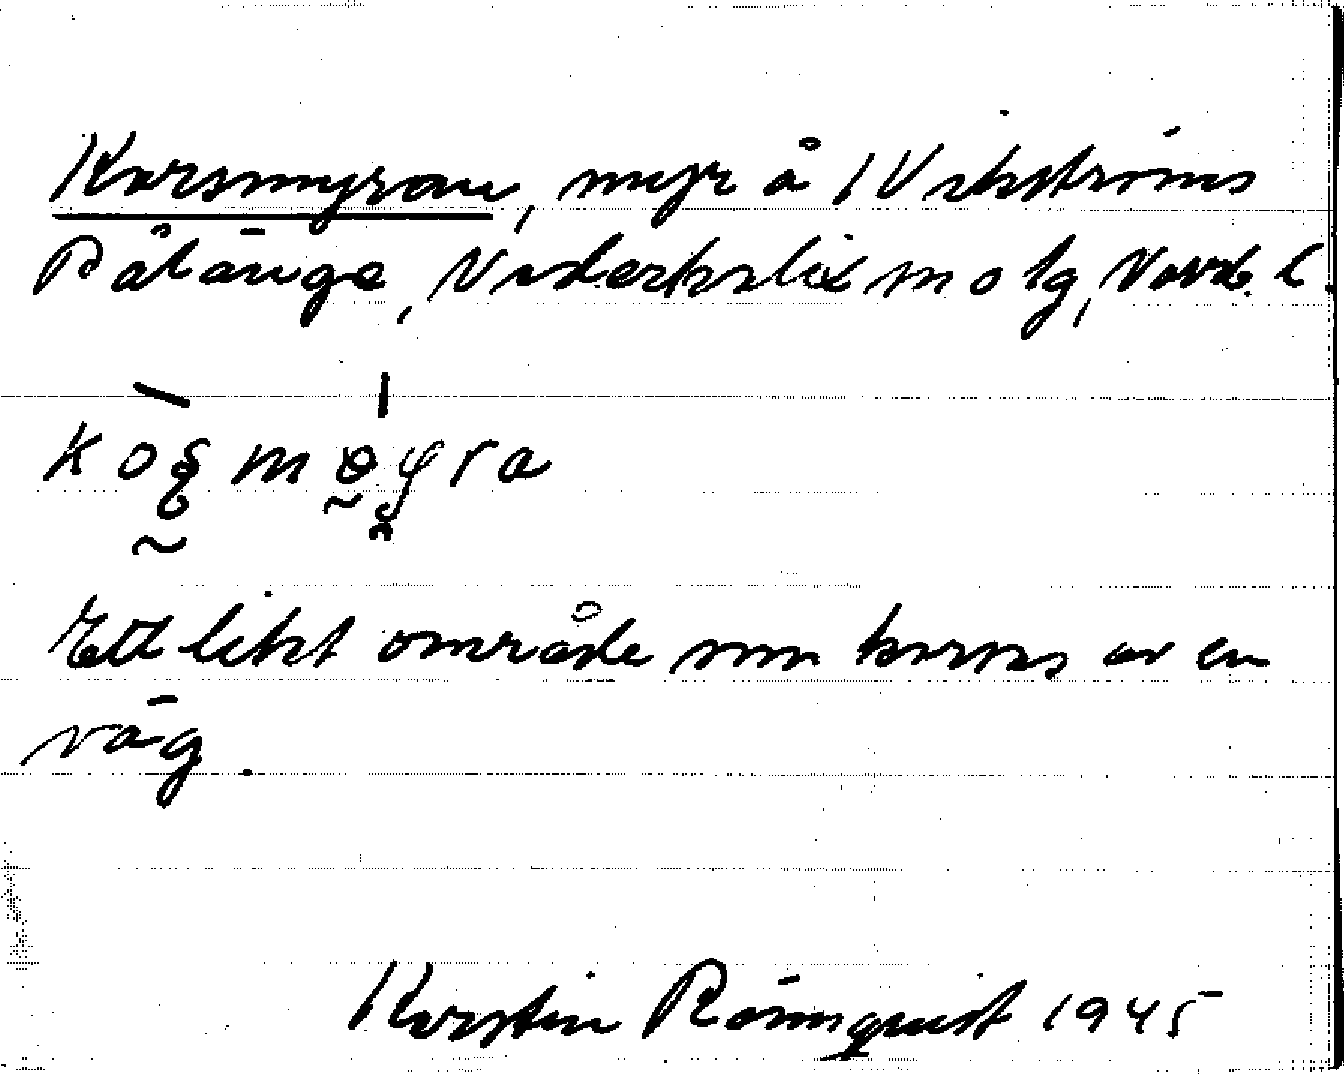 Korsmyran, myr å 1 Vikströms
Pålänge, Nederkalix m o lg, Nordb. l.
Ett litet område som korsas av en
väg.
Kerstin Rönnquist 1945